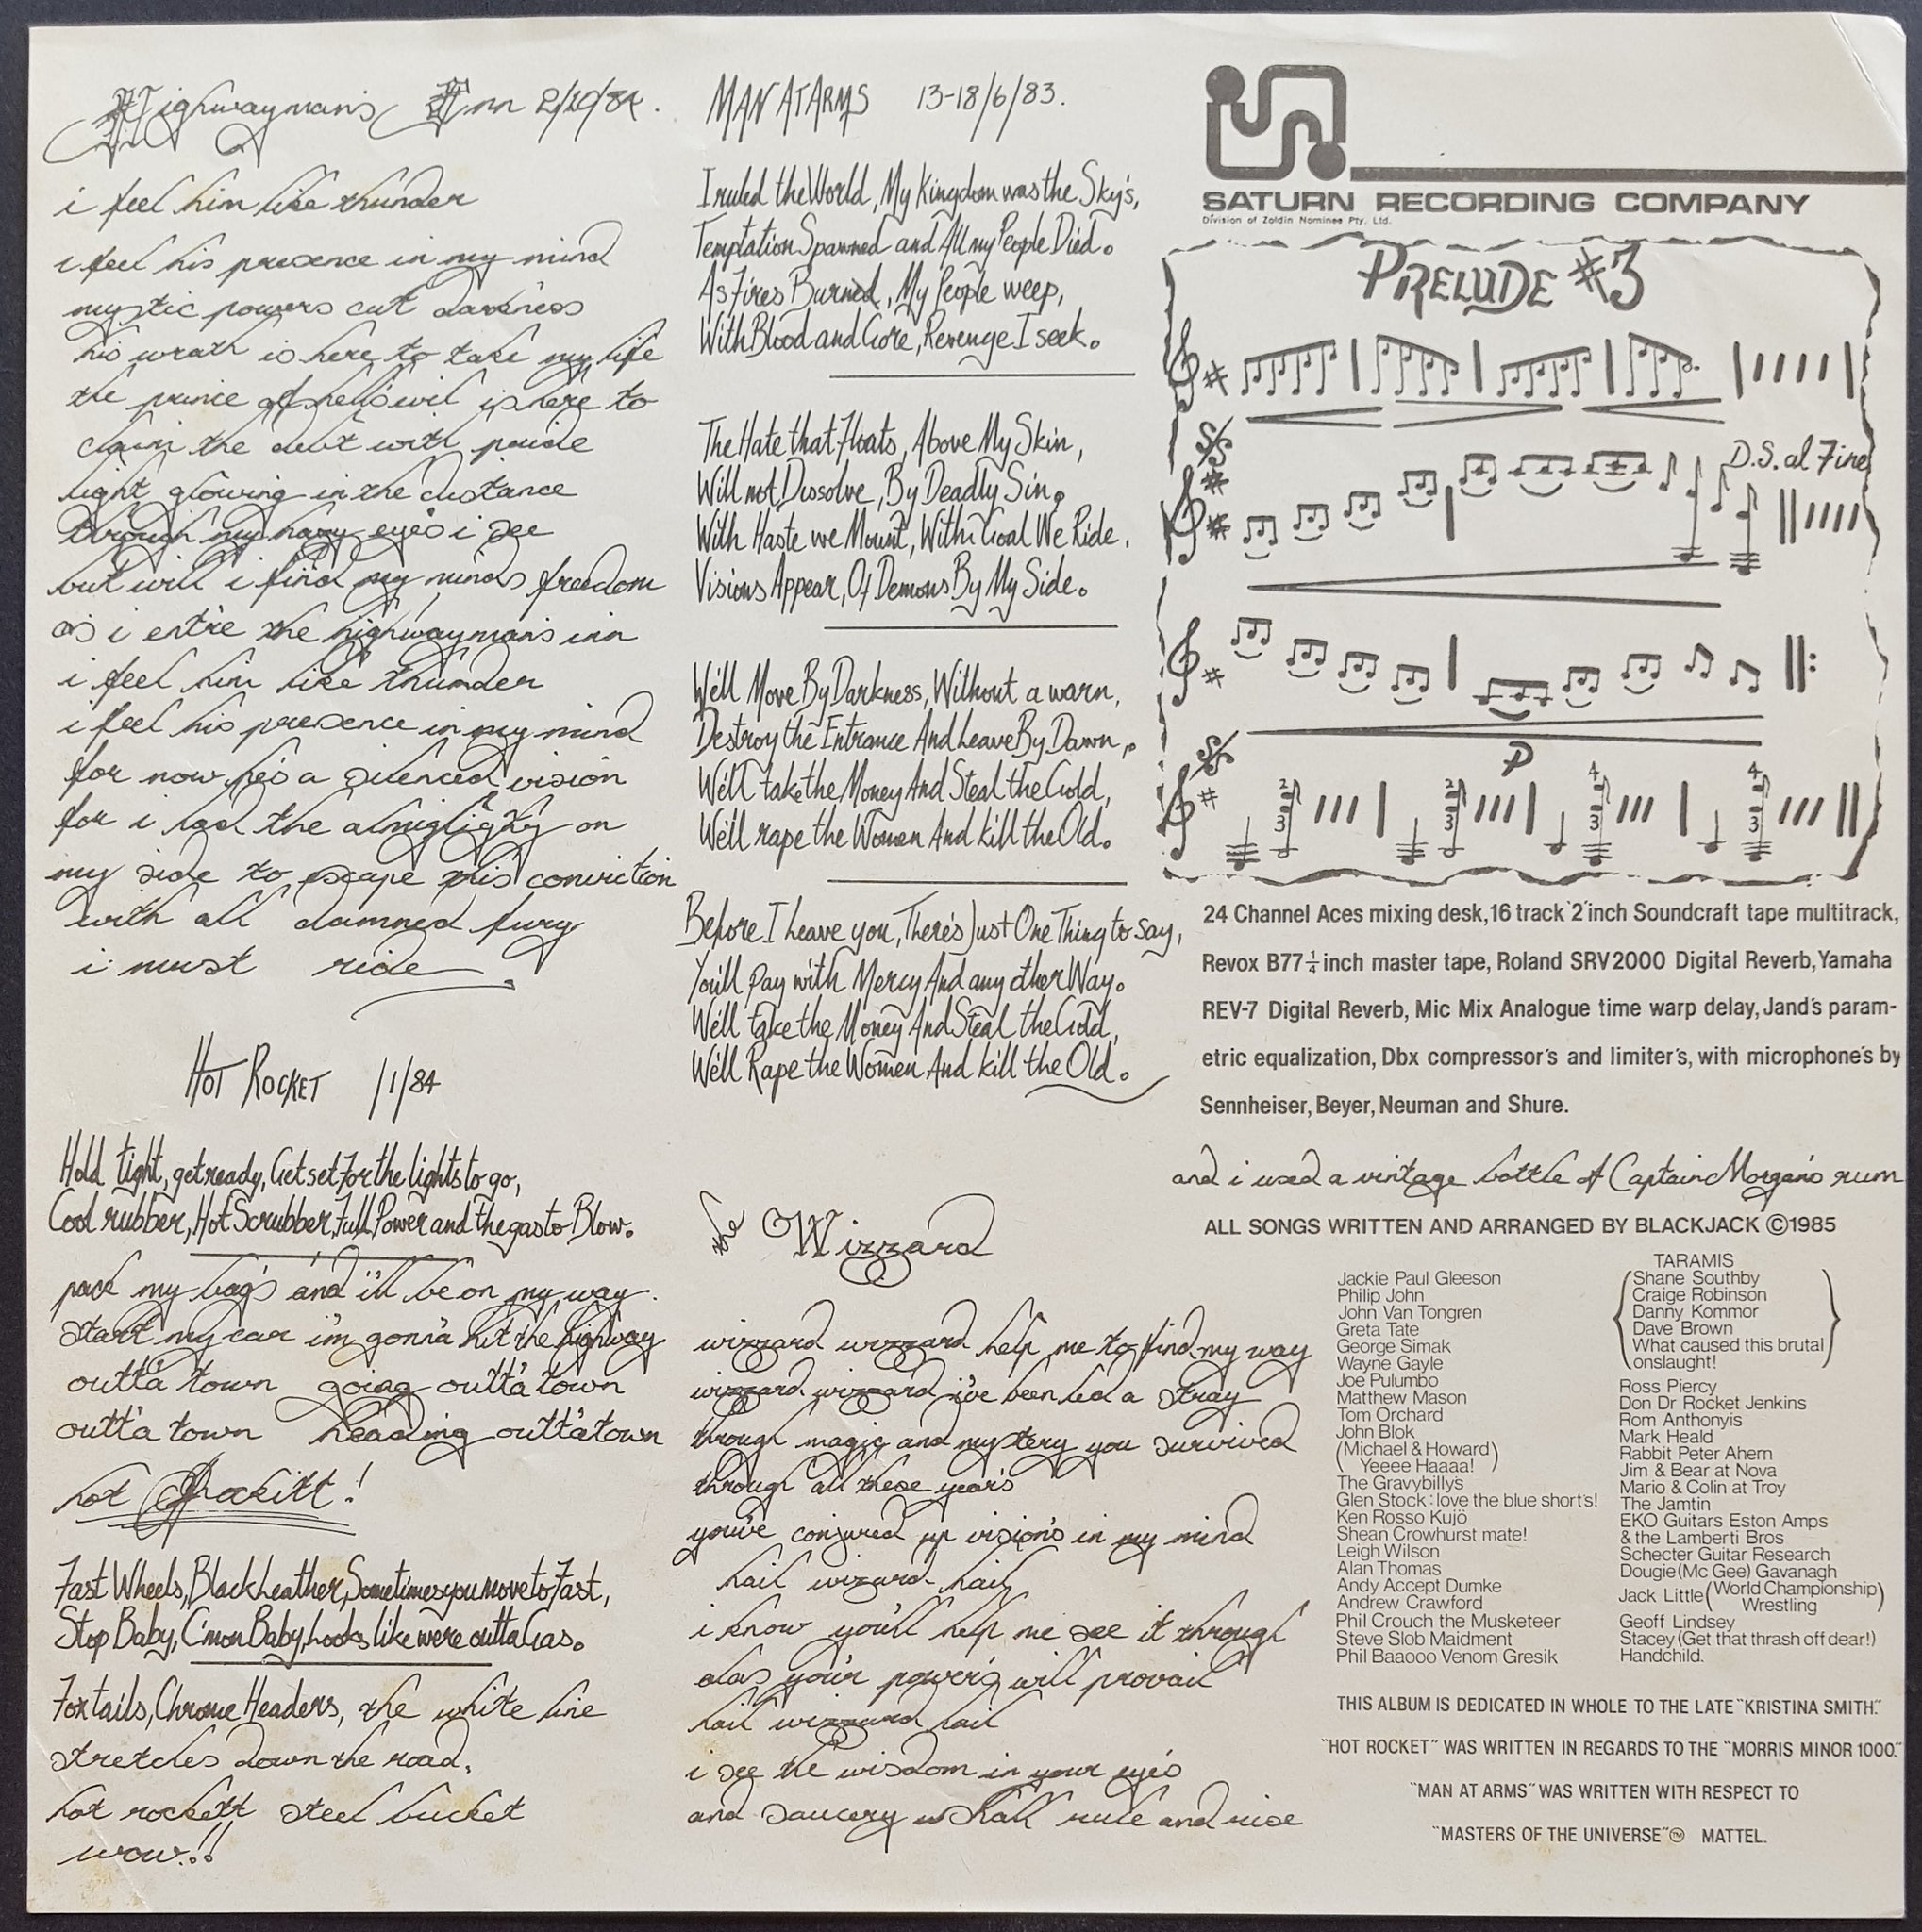 Highwayman's Inn 2/10/84.
i feel him like thunder
i feel his presence in my mind
mystic powers cut darkness
his wrath is here to take my life
the prince of hells evil is here to
claim the debt with pride
light glowing in the distance
through my hazy eye's i see
but will i find my minds freedom
as i entre the highwayman's inn
i feel him like thunder
i feel his presence in my mind
for now he's a silenced vision
for i had the almighty on
my side to escape this conviction
with all damned fury
i must ride.
HOT ROCKET /1/84
Hold tight, get ready, Get set For the lights to go,
Cool rubber, Hot Scrubber, Full Power and the gas to Blow.
pack my bag's and i'll be on my way.
start my car i'm gonna hit the highway
outta town going outta town
outta town heading outta town
hot Rockitt!
Fast Wheels, Black Leather, Sometimes you move to Fast,
Stop Baby, C'mon Baby, Looks like were outta Gas.
Fox tails, Chrome Headers, the white line
stretches down the road.
hot rockett steel bucket
wow!!
MAN AT ARMS 13-18/6/83.
I ruled the World, My Kingdom was the Sky's,
Temptation Spawned and All my People Died.
As Fires Burned, My People weep,
With Blood and Gore, Revenge I seek.
The Hate that Floats, Above My Skin,
Will not Dissolve, By Deadly Sin.
With Haste we Mount, With Goal We Ride.
Visions Appear, Of Demons By My Side.
We'll Move By Darkness, Without a warn,
Destroy the Entrance And Leave By Dawn,
We'll take the Money And Steal the Gold,
We'll rape the Women And kill the Old.
Before I Leave you, There's Just One Thing to say,
You'll Pay with Mercy And any other Way.
We'll take the Money And Steal the Gold,
We'll Rape the Women And kill the Old.
the Wizzard
wizzard wizzard help me to find my way
wizzard wizzard i've been led a stray
through magic and mystery you survived
through all these year's
you've conjured up vision's in my mind
hail wizzard hail
i know you'll help me see it through
alas your power's will prevail
hail wizzard hail
i see the wisdom in your eye's
and saucery shall rule and rise
SATURN RECORDING COMPANY
Division of Zoldin Nominee Pty. Ltd.
PRELUDE #3
D.S. al Fine
P
2 3 2 3 4 3 4 3
24 Channel Aces mixing desk, 16 track 2" inch Soundcraft tape multitrack,
Revox B77 ¼ inch master tape, Roland SRV 2000 Digital Reverb, Yamaha
REV-7 Digital Reverb, Mic Mix Analogue time warp delay, Jand's param-
etric equalization, Dbx compressor's and limiter's, with microphone's by
Sennheiser, Beyer, Neuman and Shure.
and i used a vintage bottle of Captain Morgan's rum
ALL SONGS WRITTEN AND ARRANGED BY BLACKJACK ©1985
Jackie Paul Gleeson
Philip John
John Van Tongren
Greta Tate
George Simak
Wayne Gayle
Joe Pulumbo
Matthew Mason
Tom Orchard
John Blok
(Michael & Howard)
Yeeee Haaaa!
The Gravybilly's
Glen Stock: love the blue short's!
Ken Rosso Kujö
Shean Crowhurst mate!
Leigh Wilson
Alan Thomas
Andy Accept Dumke
Andrew Crawford
Phil Crouch the Musketeer
Steve Slob Maidment
Phil Baaooo Venom Gresik
TARAMIS
Shane Southby
Craige Robinson
Danny Kommor
Dave Brown
What caused this brutal
onslaught!
Ross Piercy
Don Dr Rocket Jenkins
Rom Anthonyis
Mark Heald
Rabbit Peter Ahern
Jim & Bear at Nova
Mario & Colin at Troy
The Jamtin
EKO Guitars Eston Amps
& the Lamberti Bros
Schecter Guitar Research
Dougie (Mc Gee) Gavanagh
Jack Little (World Championship)
Wrestling
Geoff Lindsey
Stacey (Get that thrash off dear!)
Handchild.
THIS ALBUM IS DEDICATED IN WHOLE TO THE LATE "KRISTINA SMITH."
"HOT ROCKET" WAS WRITTEN IN REGARDS TO THE "MORRIS MINOR 1000."
"MAN AT ARMS" WAS WRITTEN WITH RESPECT TO
"MASTERS OF THE UNIVERSE" ™ MATTEL.